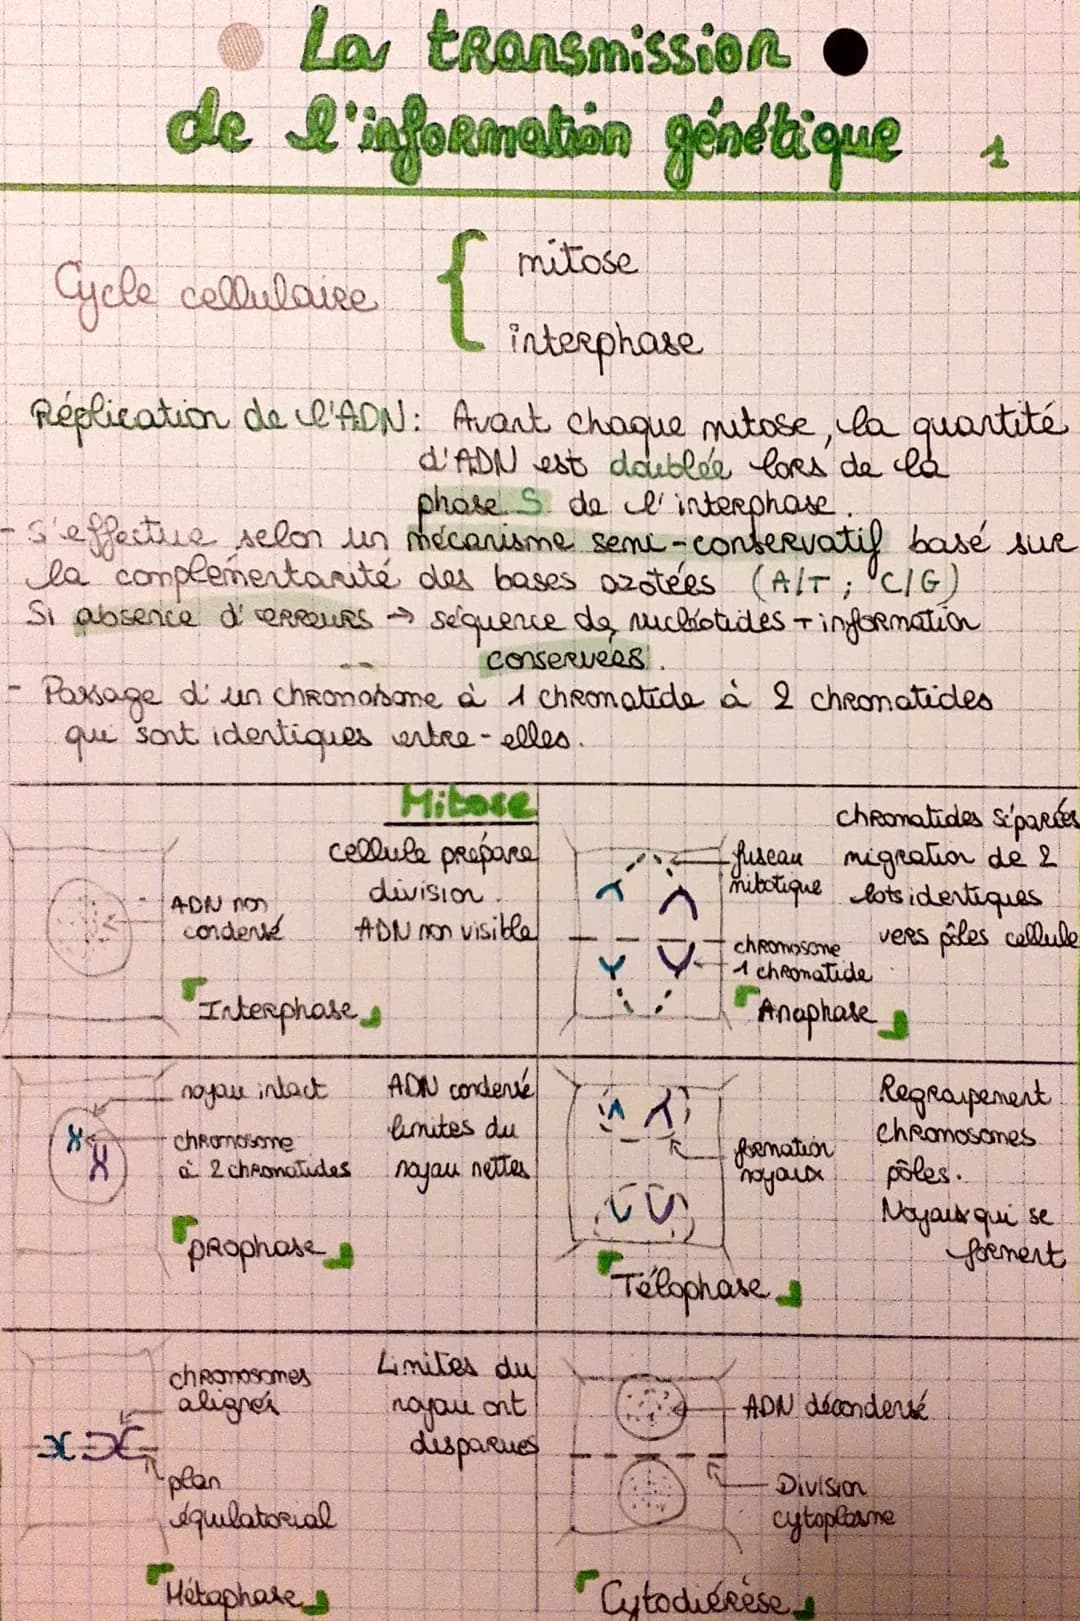 La transmission
de l'information génétique 1
Cycle cellulaire
mitose
interphase
Réplication de l'ADN: Avant chaque mitose, la quantité
d'ADN est doublée lors de la
phase S de l'interphase.
- S'effectue selon un mécanisme semi-conservatif basé sur
la complémentarité des bases azotées (A/T ; C/G)
Si absence d'erreurs → séquence de nucléotides + information
conservées.
- Passage d'un chromosome à 1 chromatide à 2 chromatides
qui sont identiques entre-elles.
Mitose
cellule prépare
division.
ADN non visible
ADN non
condensé
Interphase
chromatides séparées
migration de 2
lots identiques
vers pôles cellule
fuseau
mitotique
chromosome
1 chromatide
Anaphase
noyau intact
chromosome
à 2 chromatides
ADN condensé
limites du
noyau nettes
prophase
formation
noyaux
Regroupement
chromosomes
pôles.
Noyaux qui se
forment
Télophase
chromosomes
alignés
plan
équilatorial
Limites du
noyau ont
disparues
Métaphase
ADN décondensé
Division
cytoplasme
Cytodiérèse